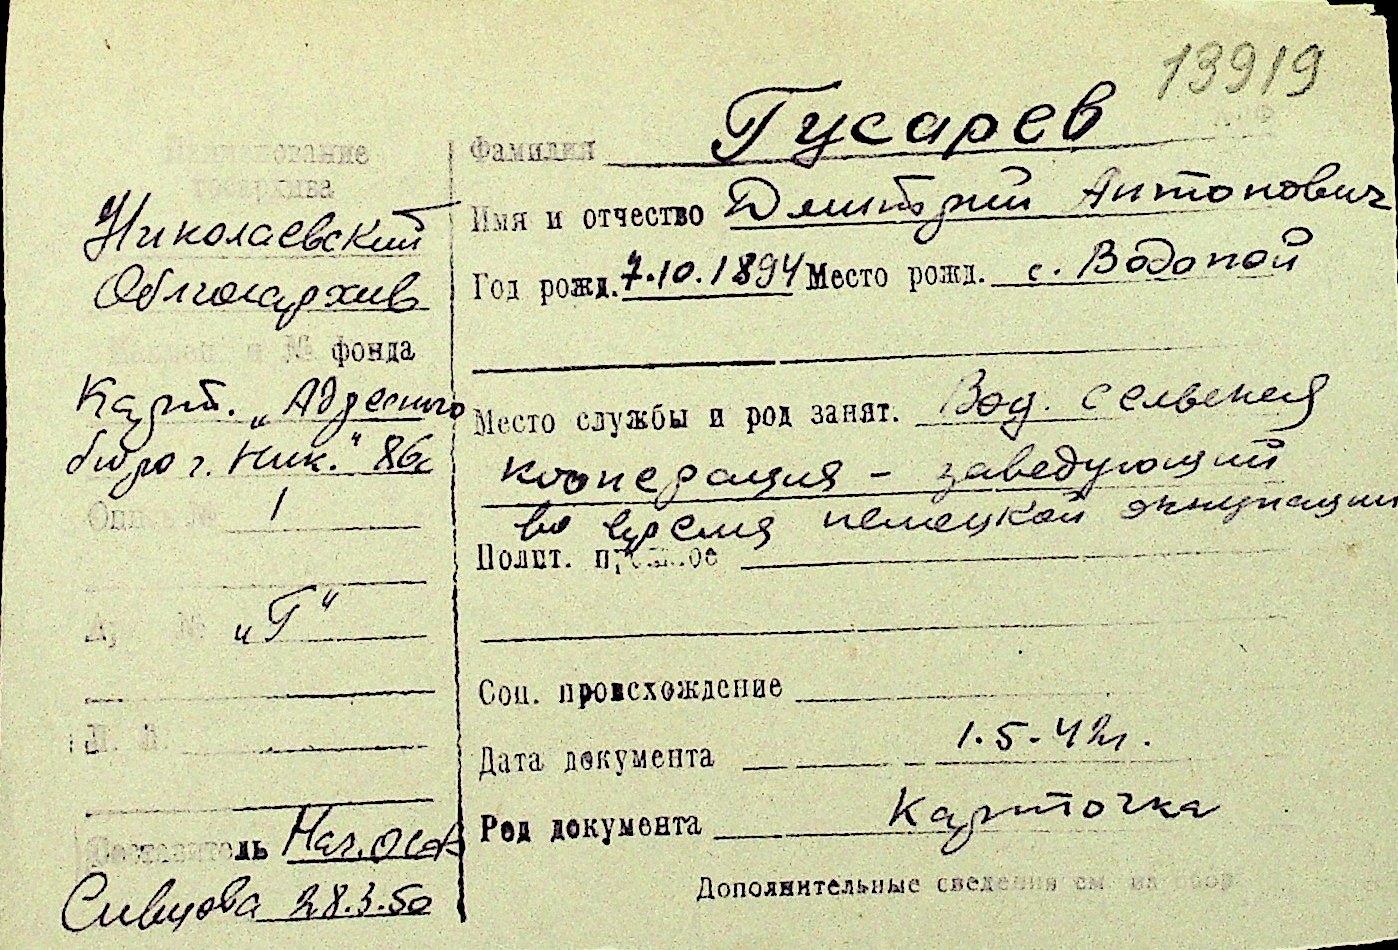 13919
Наименование
госархива
Николаевский
Облгосархив
Наимен. и № фонда
Карт. „Адресного
бюро г. Ник." 86с
Опись № 1
Арх. № „Г"
Л. Л.
Составитель Нач. ОСО
Сивцова 28.3.50
Фамилия Гусарев
Имя и отчество Дмитрий Антонович
Год рожд. 7.10.1894 Место рожд. с. Водопой
Место службы и род занят. Вод. сельская
кооперация – заведующий
во время немецкой оккупации
Полит. прошлое
Соц. происхождение
Дата документа 1.5.42г.
Род документа Карточка
Дополнительные сведения см. на обор